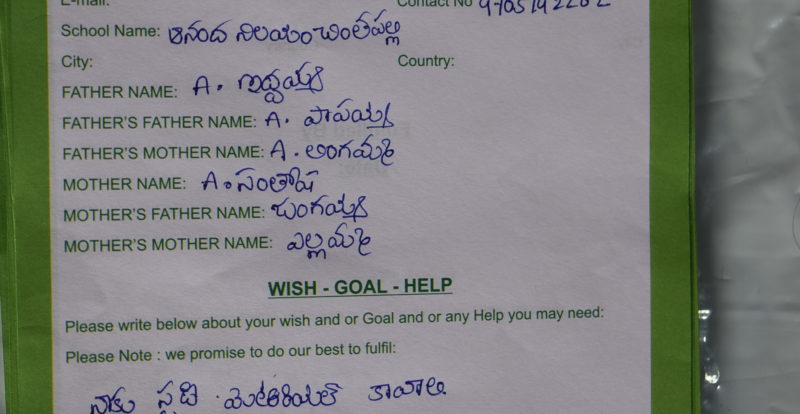 E-mail: Contact No
School Name: ఆనంద నిలయం చింతపల్లి
City: Country:
FATHER NAME: A. సిద్దయ్య
FATHER'S FATHER NAME: A. పాపయ్య
FATHER'S MOTHER NAME: A. లింగమ్మ
MOTHER NAME: A. సంతోష
MOTHER'S FATHER NAME: జంగయ్య
MOTHER'S MOTHER NAME: ఎల్లమ్మ
WISH - GOAL - HELP
Please write below about your wish and or Goal and or any Help you may need:
Please Note : we promise to do our best to fulfil:
నాకు స్టడి మెటీరియల్ కావాలి.